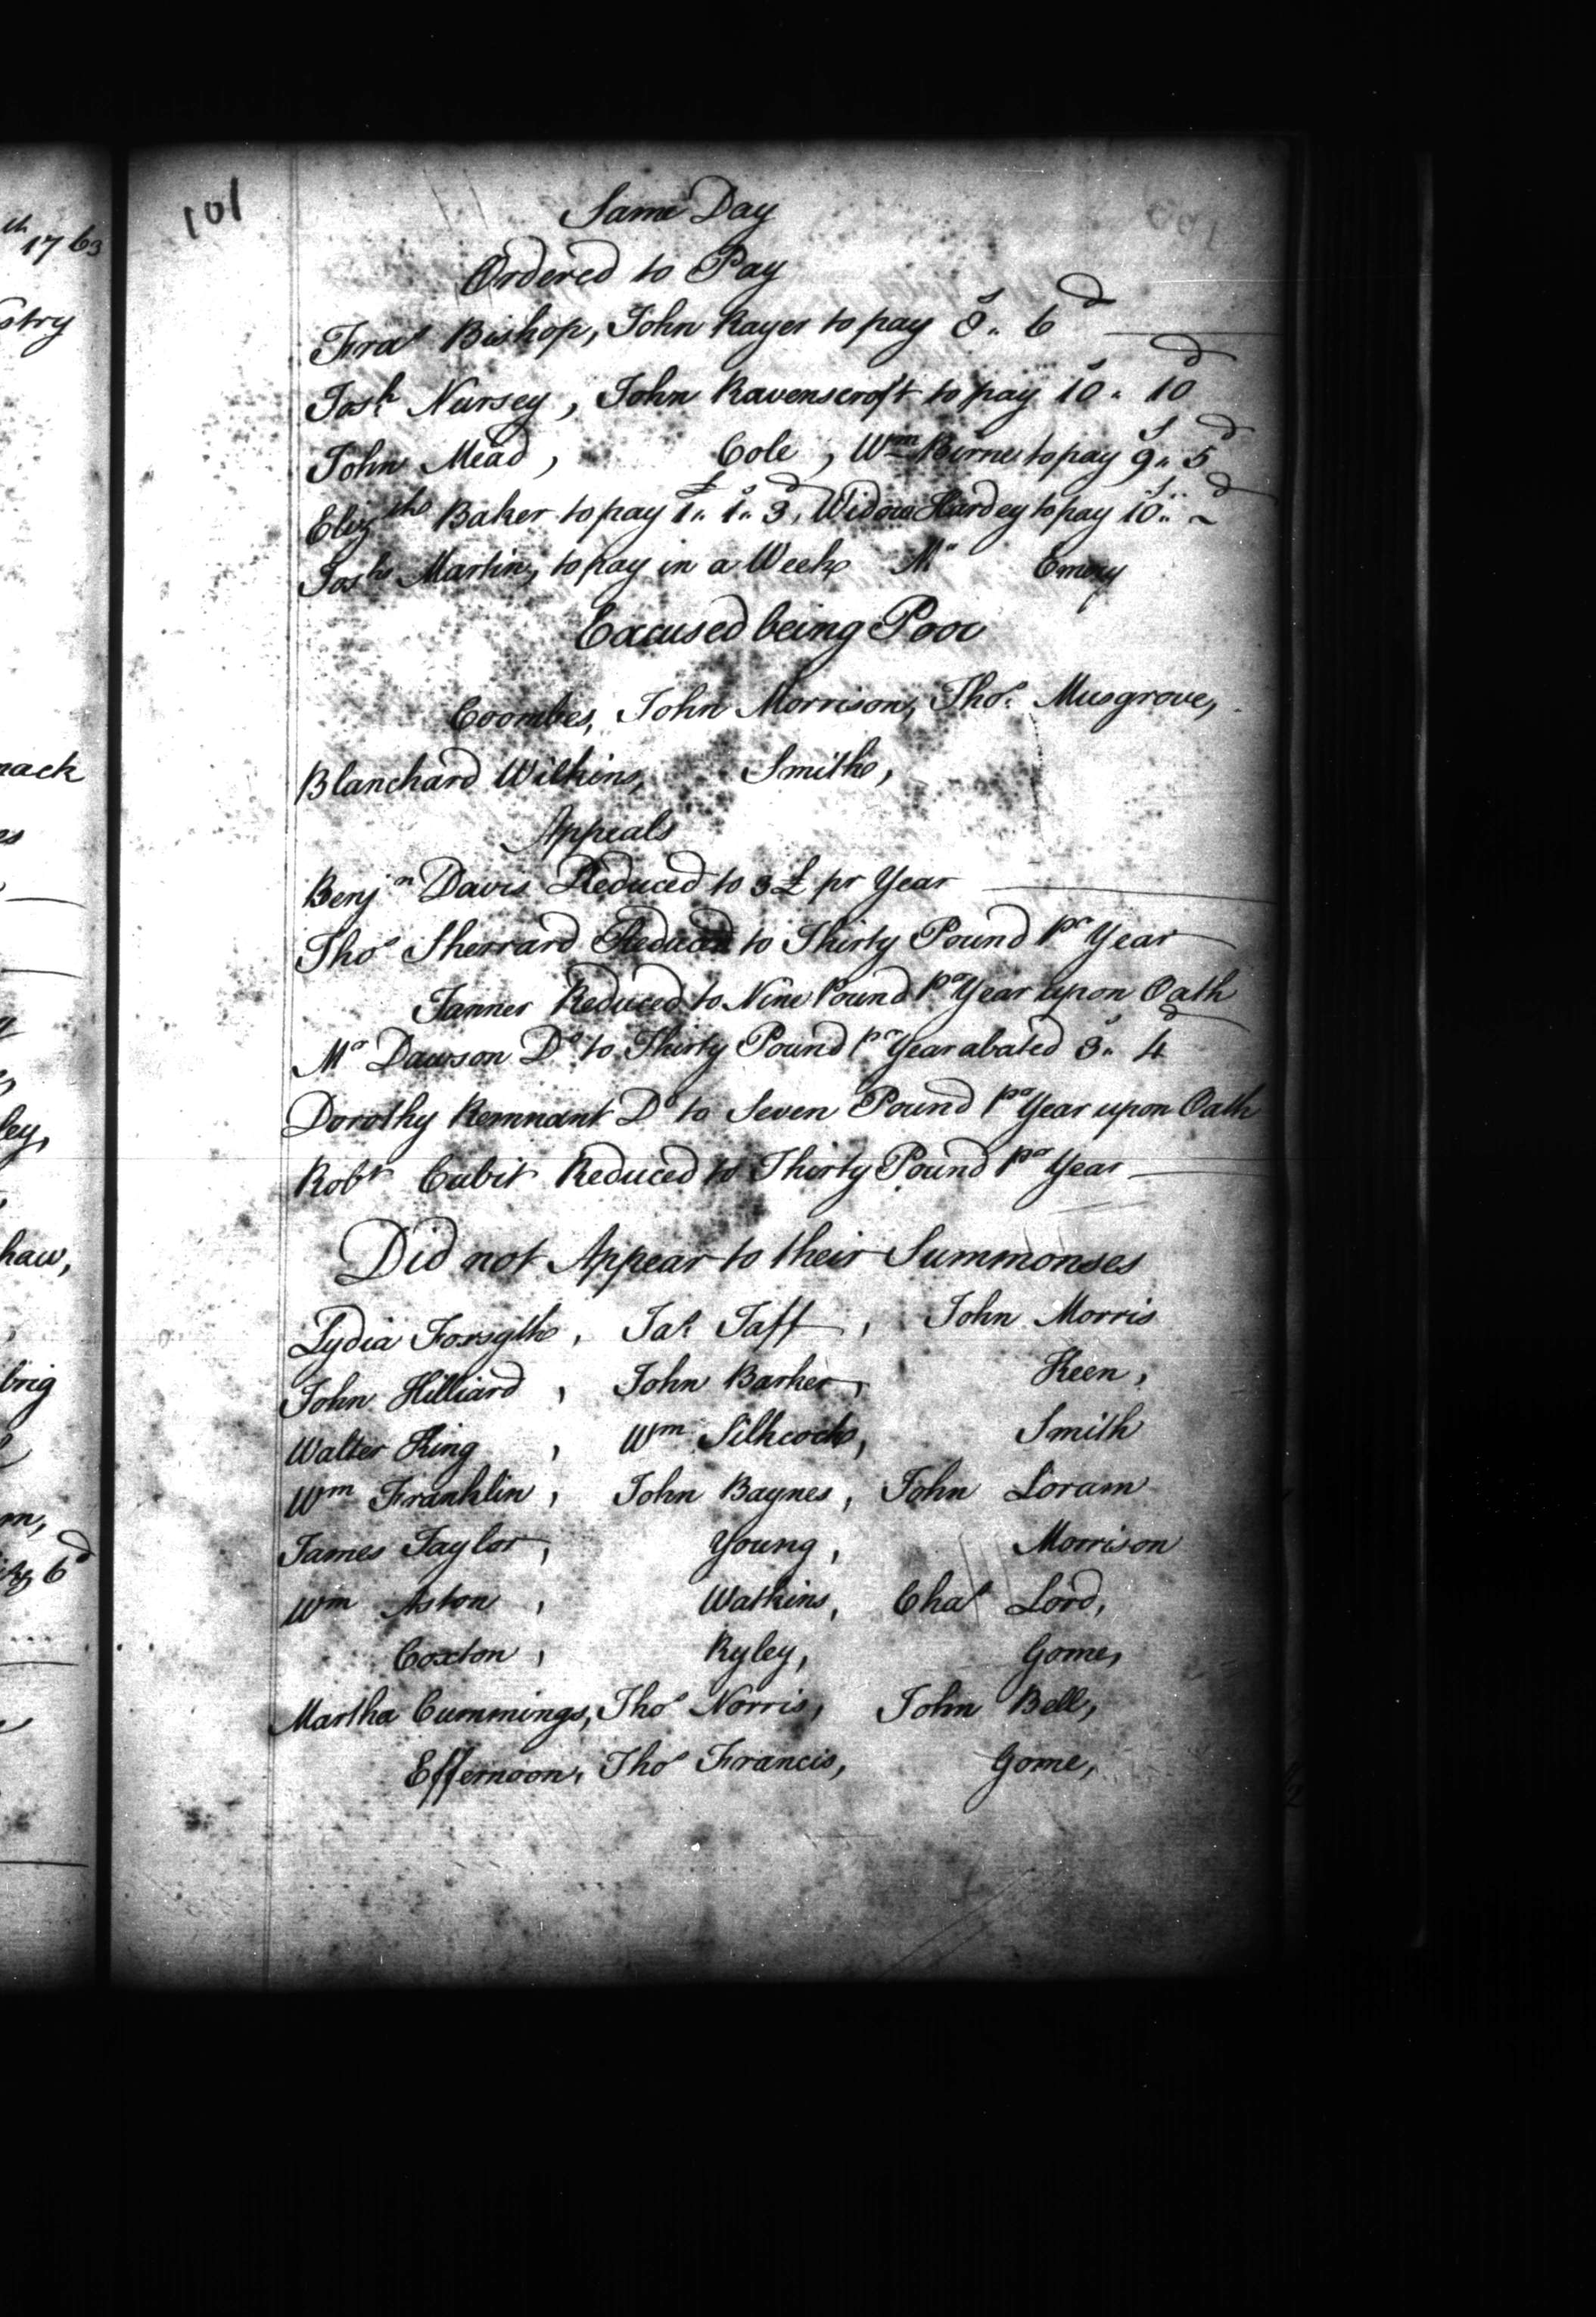 th 1763
stry
mack
es
ley,
haw,
brig
m,
6d
101
Same Day
Ordered to Pay
Fras Bishop, John Rayer to pay 8s.. 6d
Josh Nursey, John Ravenscroft to pay 10s.. 10d
John Mead, Cole, Wm Birne to pay 9s.. 5d
Elizth Baker to pay 1£.. 1s.. 3d, Widow Hardey to pay 10s.. ~d
Josh Martin, to pay in a Week Mr Emmy
Excused being Poor
Coombes, John Morrison, Thos. Musgrove,
Blanchard Wilkins, Smith,
Appeals
Benjn Davis Reduced to 3£ pr Year
Thos Sherrard Reduced to Thirty Pound Pr Year
Tanner Reduced to Nine Pound Pr Year upon Oath
Mr Dawson Do to Thirty Pound Pr Year abated 3s.. 4d
Dorothy Remnant Do to Seven Pound Pr Year upon Oath
Robt Cubit Reduced to Thirty Pound Pr Year
Did not Appear to their Summonses
Lydia Forsyth, Jas. Taff, John Morris
John Hilliard, John Barker, Keen,
Walter King, Wm Silkcock, Smith
Wm Franklin, John Baynes, John Loram
James Taylor, Young, Morrison
Wm Aston, Watkins, Chas Lord,
Coxton, Ryley, Gome,
Martha Cummings, Thos Norris, John Bell,
Effernoon, Thos Francis, Gome,